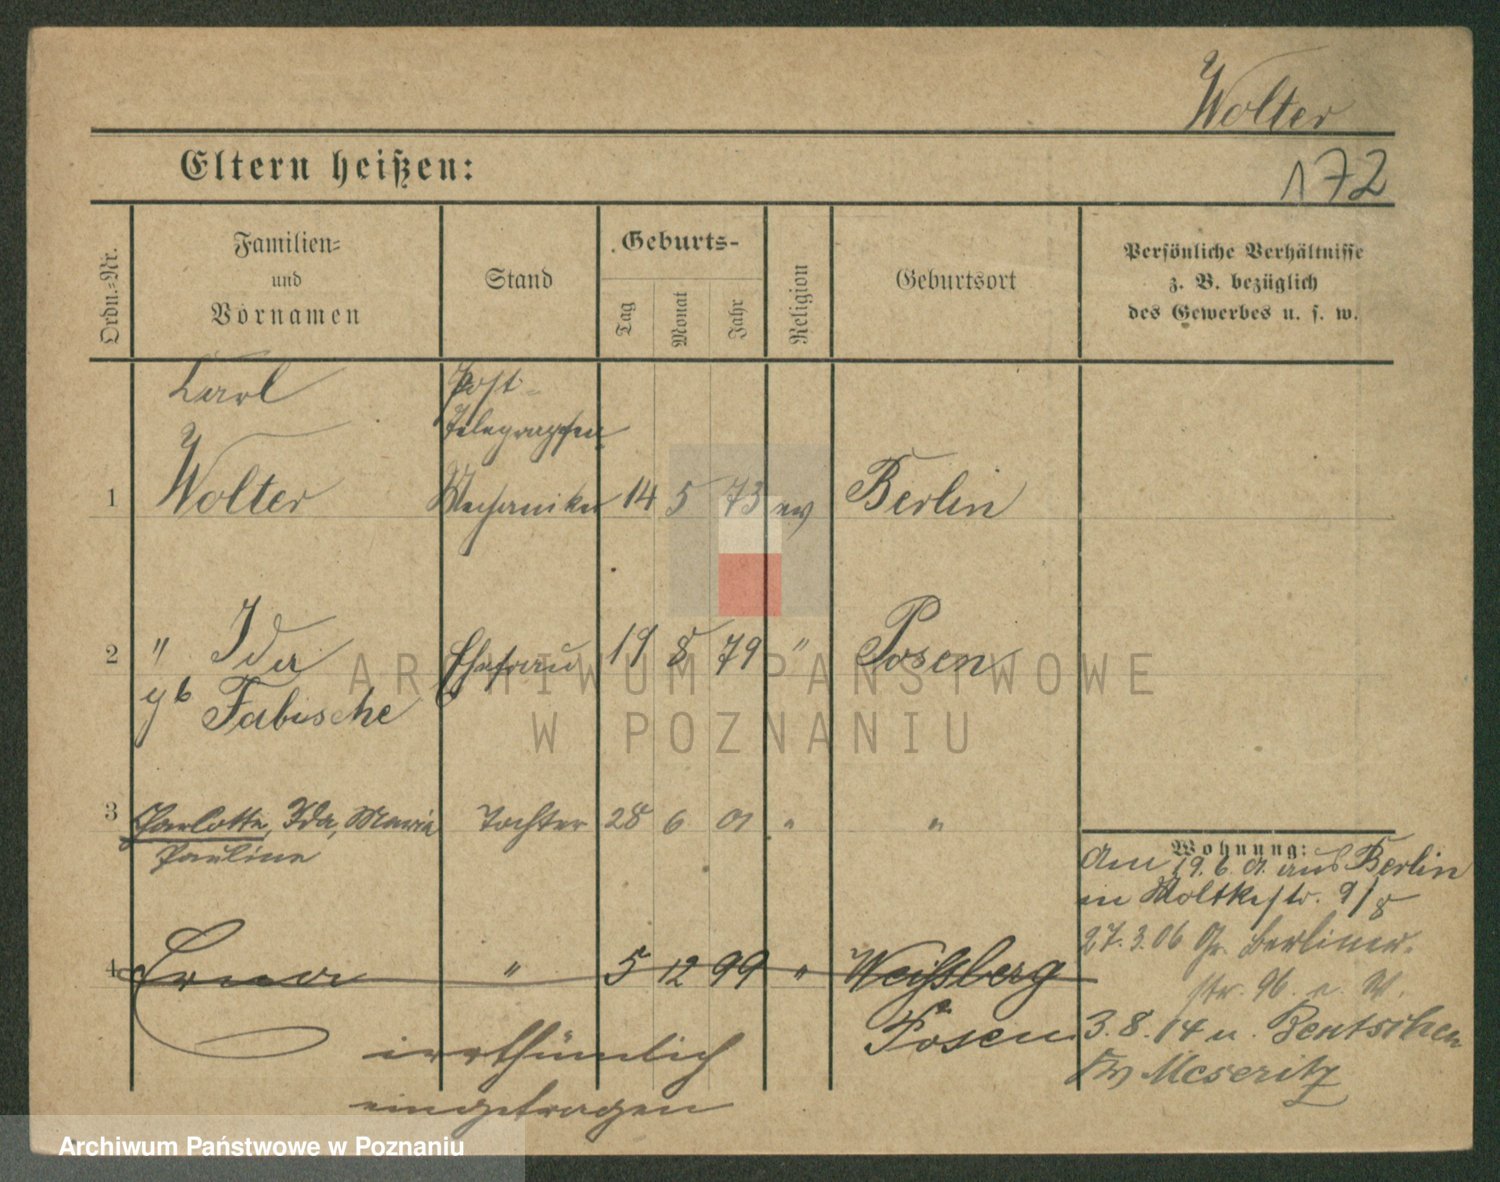 Wolter
Eltern heißen:
172
Ordn.-Nr.
Familien-
und
Vornamen
Stand
Geburts-
Tag
Monat
Jahr
Religion
Geburtsort
Persönliche Verhältnisse
z. B. bezüglich
des Gewerbes u. s. w.
Carl
Post-
Telegraphen
1 Wolter Mechaniker 14 5 73 ev Berlin
2 " Ida Ehefrau 19 8 79 " Posen
gb Fabische
3 Charlotte, Ida, Maria Tochter 28 6 01 " "
Pauline
Wohnung:
Am 19.6.01 aus Berlin
in Moltkestr. 9/8
27.3.06 Gr. Berliner-
str. 96
4 Erna " 5 12 99 " Weißberg
Posen
3.8.14 n. Bentschen
Kr Meseritz
irrthümlich
eingetragen
ARCHIWUM PAŃSTWOWE
W POZNANIU
Archiwum Państwowe w Poznaniu